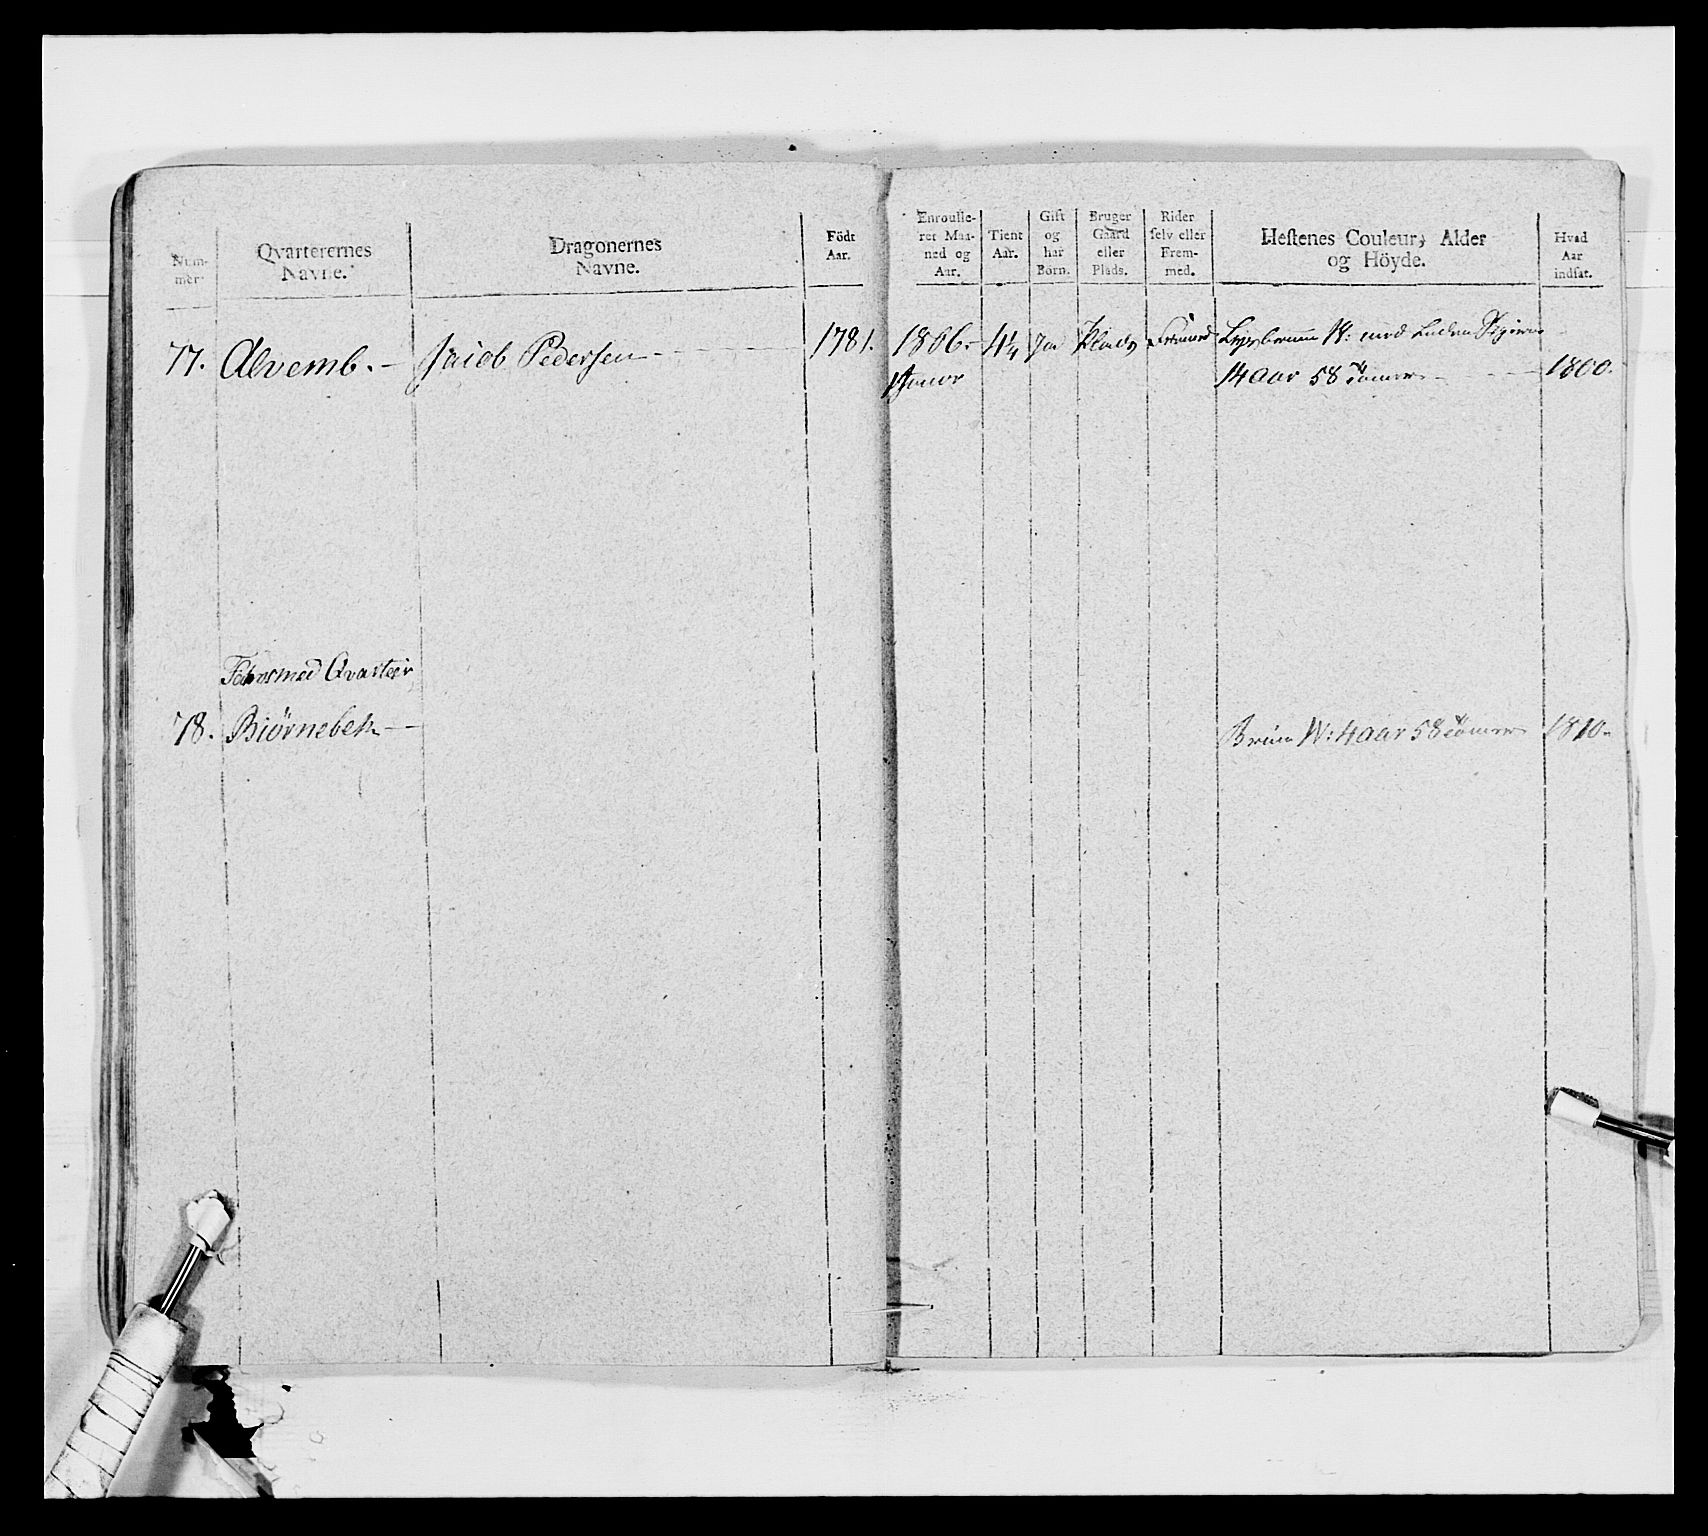 Num-
mer
Qvarterernes
Navne.
Dragonernes
Navne.
Födt
Aar.
Enroulle-
ret Maa-
ned og
Aar.
Tient
Aar.
Gift
og
har
Börn.
Bruger
Gaard
eller
Plads.
Rider
selv eller
Frem-
med.
Hestenes Couleur, Alder
og Höyde.
Hvad
Aar
indsat.
77. Alvemb. Jacob Pedersen 1781. 1806. 4¼ Ja Plads Fremed Lysebruun W: med
1 Janvr 14 aar 58 Tommer 1800.
Qvarteer
78. Biörnebek Bruun W: 4 aar 58 Tommer 1810.